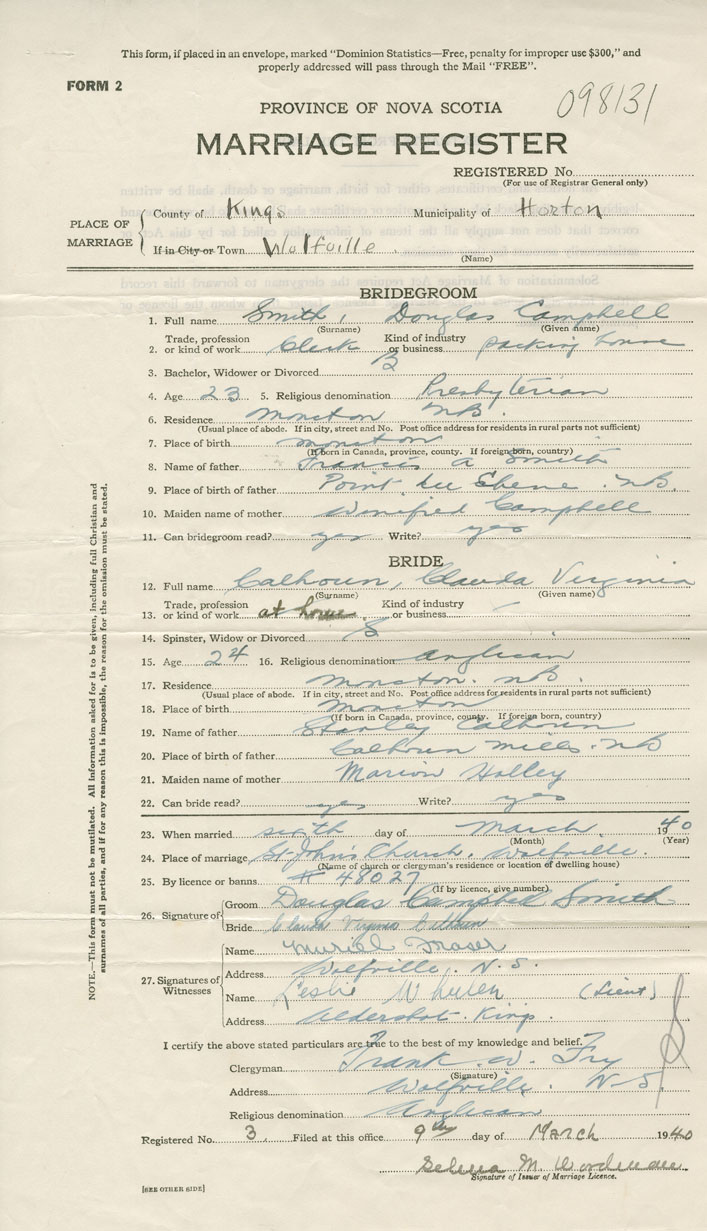 This form, if placed in an envelope, marked "Dominion Statistics—Free, penalty for improper use $300," and
properly addressed will pass through the Mail "FREE".
FORM 2
098131
PROVINCE OF NOVA SCOTIA
MARRIAGE REGISTER
REGISTERED No.
(For use of Registrar General only)
PLACE OF MARRIAGE
County of Kings Municipality of Horton
If in City or Town Wolfville
(Name)
BRIDEGROOM
1. Full name Smith, Douglas Campbell
(Surname) (Given name)
2. Trade, profession or kind of work Clerk Kind of industry or business packing house
3. Bachelor, Widower or Divorced B
4. Age 23 5. Religious denomination Presbyterian
6. Residence Moncton NB.
(Usual place of abode. If in city, street and No. Post office address for residents in rural parts not sufficient)
7. Place of birth Moncton
(If born in Canada, province, county. If foreign born, country)
8. Name of father Francis A Smith
9. Place of birth of father Point du Chene. NB.
10. Maiden name of mother Winifred Campbell
11. Can bridegroom read? yes Write? yes
BRIDE
12. Full name Calhoun, Clauda Virginia
(Surname) (Given name)
13. Trade, profession or kind of work at home Kind of industry or business —
14. Spinster, Widow or Divorced S
15. Age 24 16. Religious denomination Anglican
17. Residence Moncton. NB.
(Usual place of abode. If in city, street and No. Post office address for residents in rural parts not sufficient)
18. Place of birth Moncton
(If born in Canada, province, county. If foreign born, country)
19. Name of father Stanley Calhoun
20. Place of birth of father Calhoun Mills. NB
21. Maiden name of mother Marion Holley
22. Can bride read? yes Write? yes
23. When married sixth day of March, 1940
(Month) (Year)
24. Place of marriage St. John's Church, Wolfville.
(Name of church or clergyman's residence or location of dwelling house)
25. By licence or banns # 48027
(If by licence, give number)
26. Signature of
Groom Douglas Campbell Smith
Bride Clauda Virginia Calhoun
27. Signatures of Witnesses
Name Muriel Fraser
Address Wolfville. N.S.
Name Leslie W (Lieut)
Address Aldershot. Kings.
I certify the above stated particulars are true to the best of my knowledge and belief.
Clergyman Frank W. Fry
(Signature)
Address Wolfville. N.S.
Religious denomination Anglican
Registered No. 3 Filed at this office 9th day of March 1940
M. Woodman
Signature of Issuer of Marriage Licence.
[SEE OTHER SIDE]
NOTE.—This form must not be mutilated. All information asked for is to be given, including full Christian and
surnames of all parties, and if for any reason this is impossible, the reason for the omission must be stated.